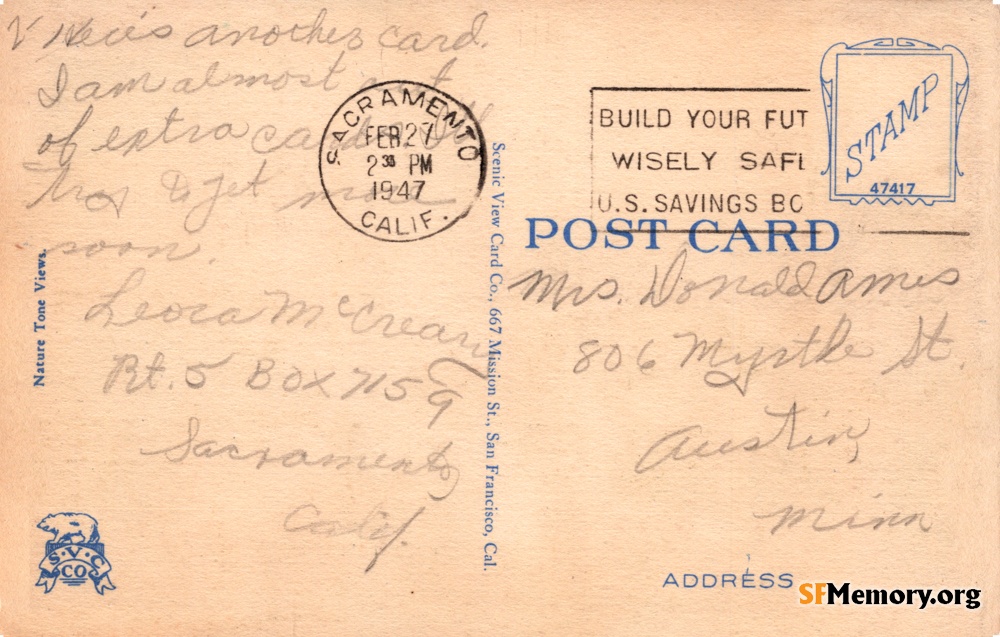 Here's another card.
I am almost out
of extra cards. I'll
try to get more
soon.
Leora McCreary
Rt. 5 Box 7159
Sacramento
Calif.
Nature Tone Views.
S.V.C
CO
SACRAMENTO
FEB 27
2 30 PM
1947
CALIF.
Scenic View Card Co., 667 Mission St., San Francisco, Cal.
BUILD YOUR FUT
WISELY SAFL
U.S. SAVINGS BO
STAMP
47417
POST CARD
Mrs. Donald Ames
806 Myrtle St.
Austin,
Minn
ADDRESS
SFMemory.org